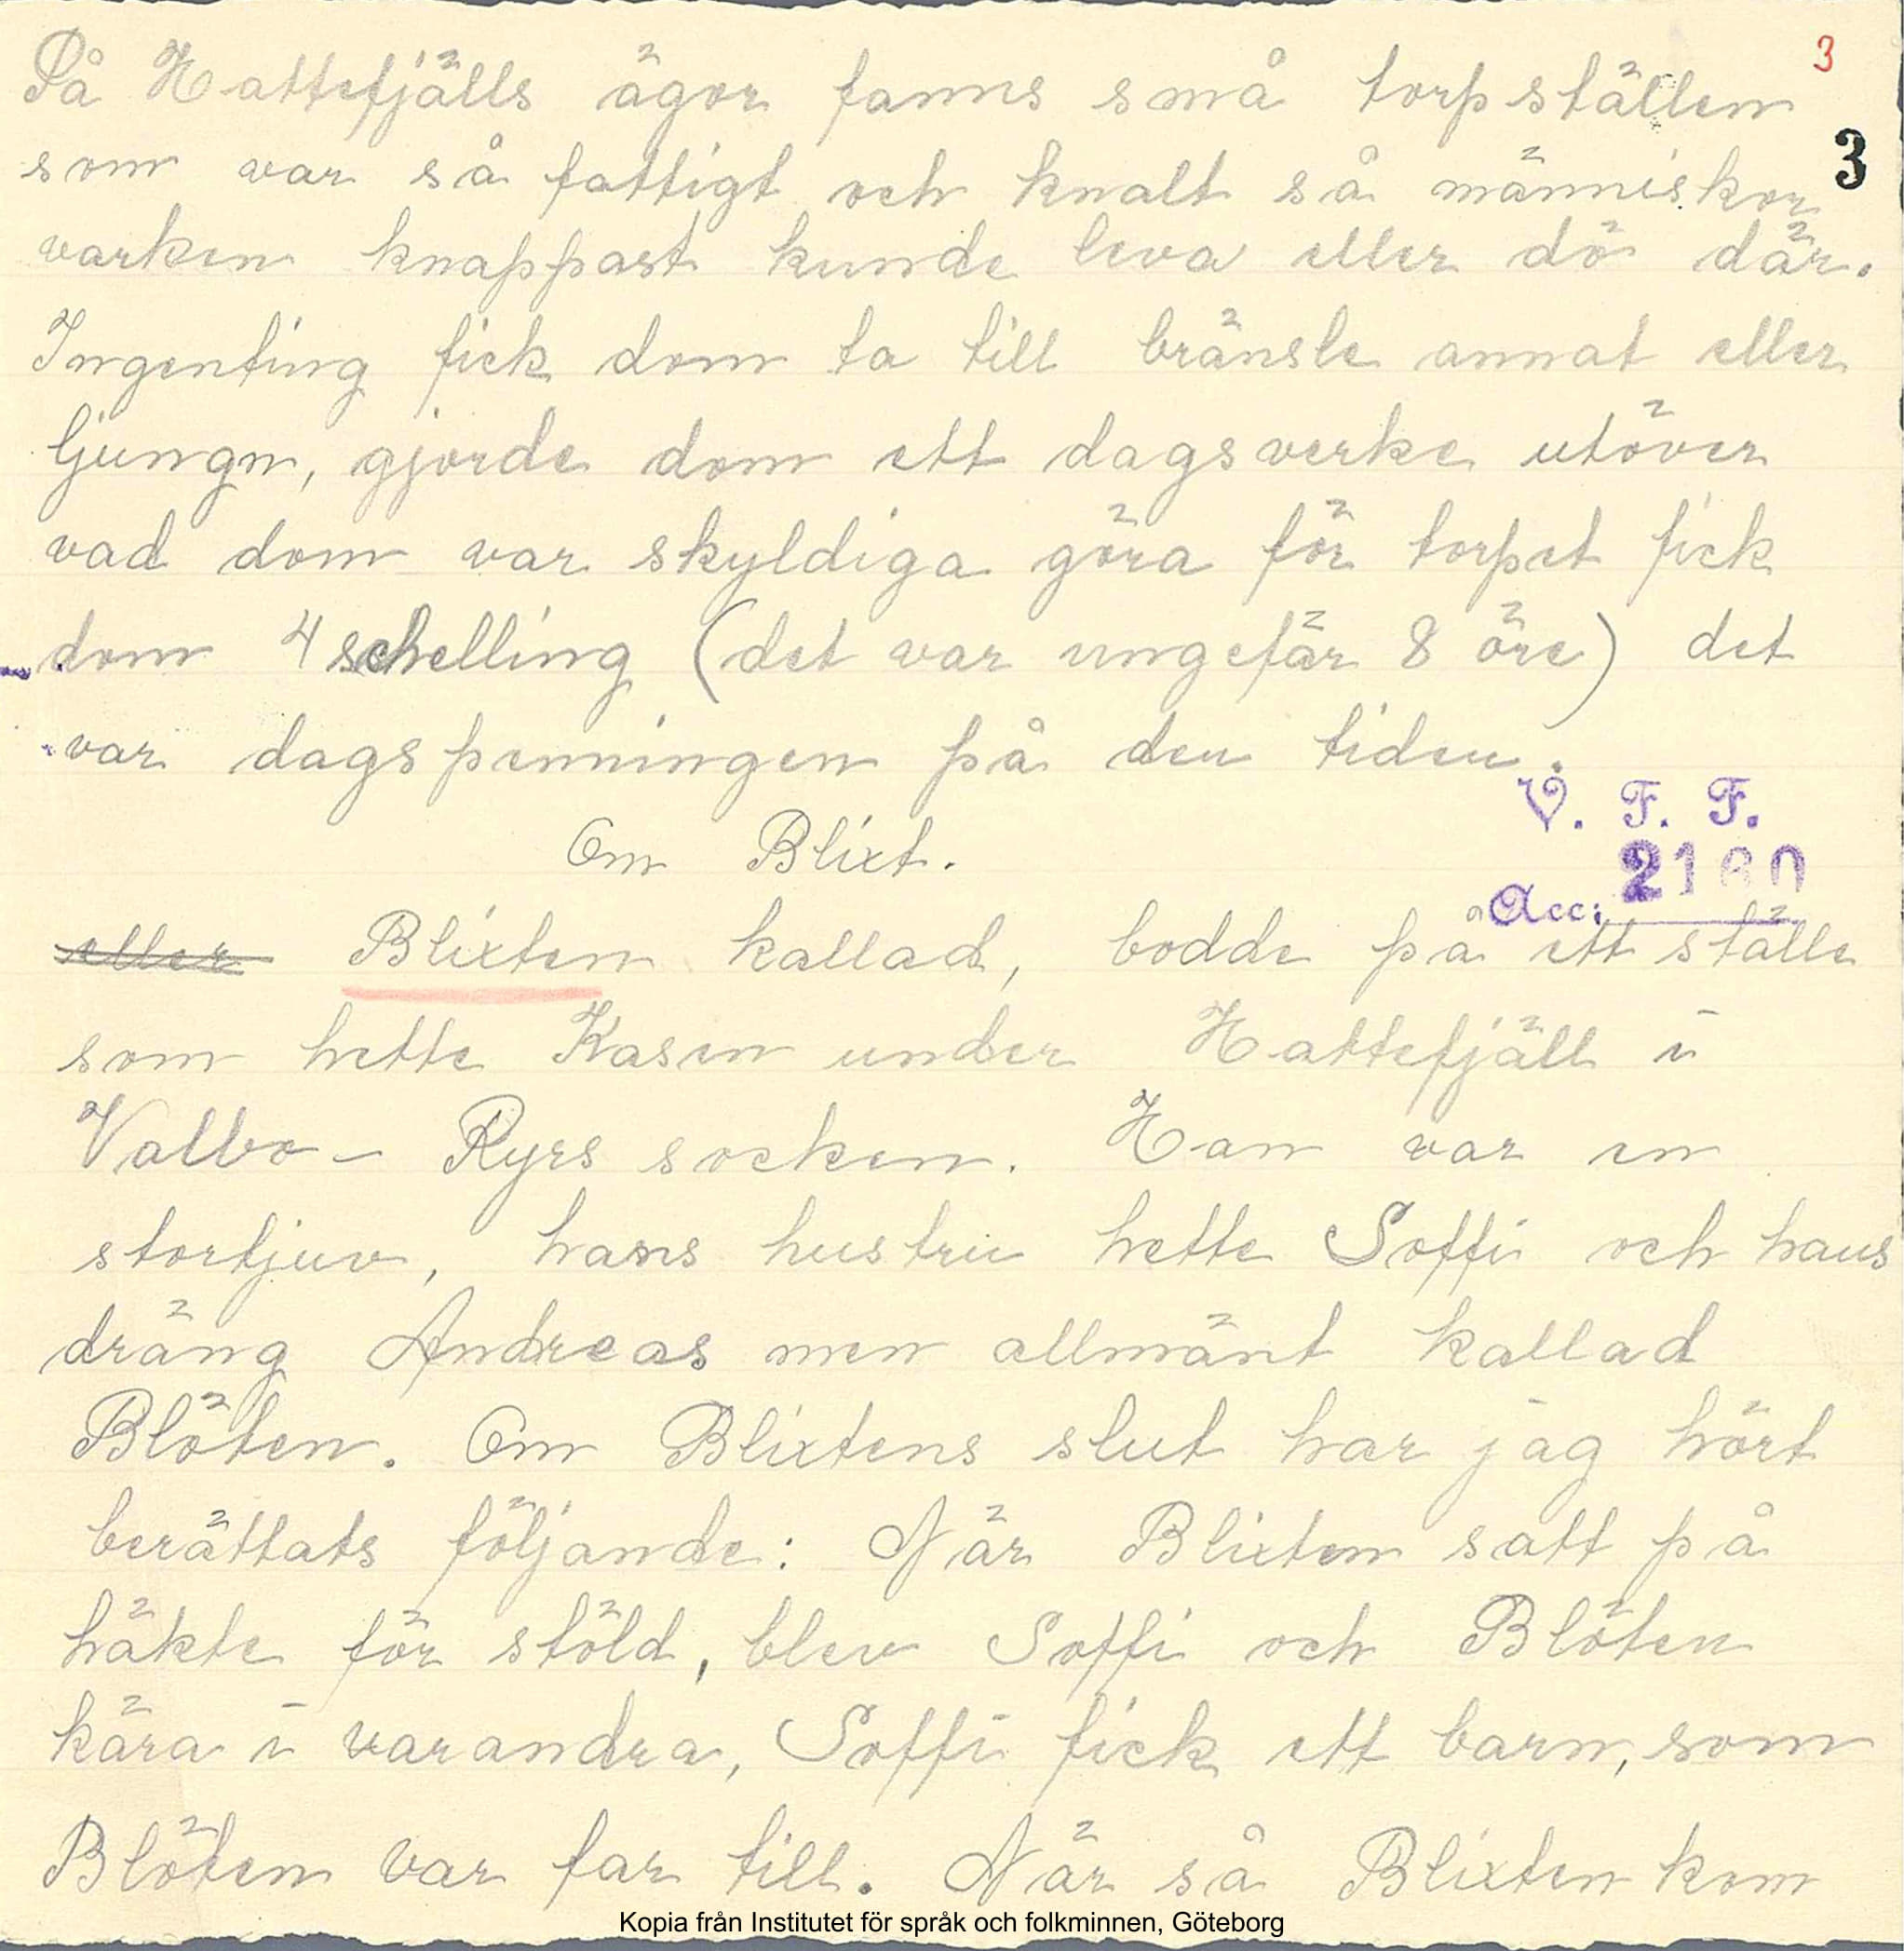 3
På Hattefjälls ägor fanns små torpställen
3
som var så fattigt och knalt så människor
varken knappast kunde leva eller dö där.
Ingenting fick dom ta till bränsle annat eller
ljungn, gjorde dom ett dagsverke utöver
vad dom var skyldiga göra för torpet fick
dom 4 schelling (det var ungefär 8 öre) det
var dagspenningen på den tiden.
V. F. F.
Om Blixt.
Acc: 2180
eller Blixten kallad, bodde på ett ställe
som hette Kasen under Hattefjäll i
Valbo - Ryrs socken. Han var en
stortjuv, hans hustru hette Soffi och hans
dräng Andreas men allmänt kallad
Blöten. Om Blixtens slut har jag hört
berättats följande: När Blixten satt på
häkte för stöld, blev Soffi och Blöten
kära i varandra, Soffi fick ett barn, som
Blöten var far till. När så Blixten kom
Kopia från Institutet för språk och folkminnen, Göteborg